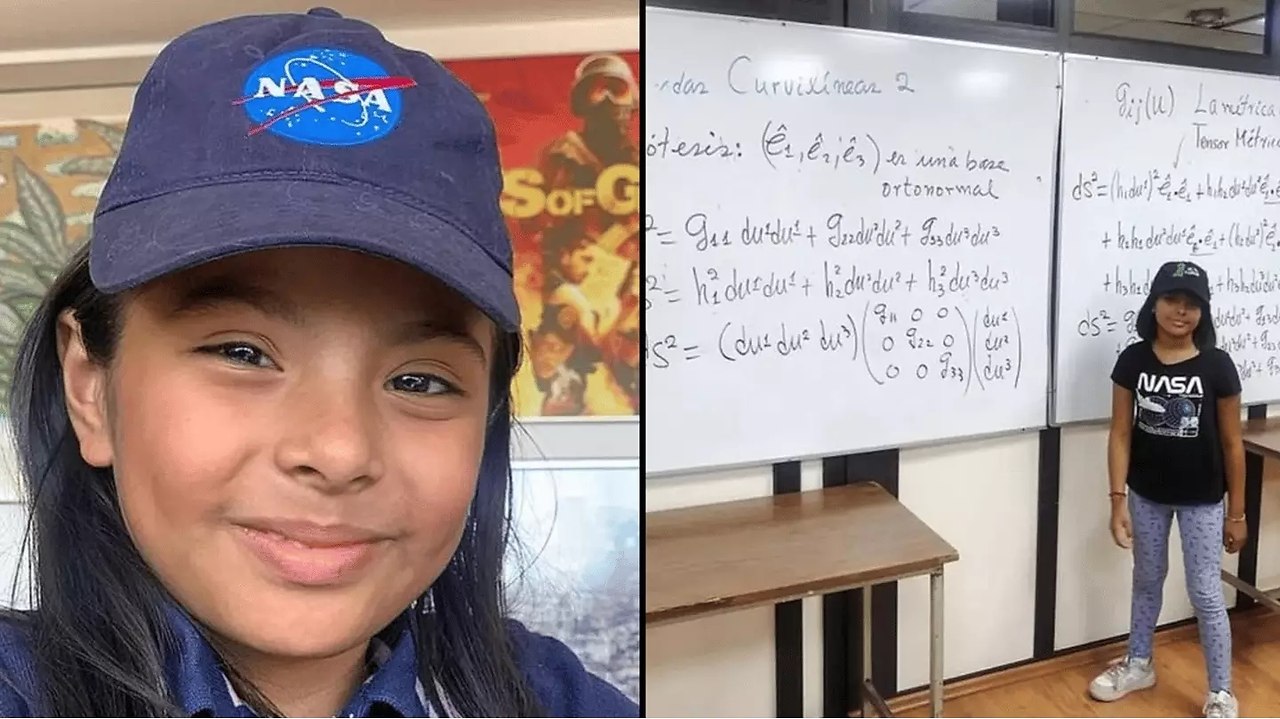 NASA
S OF G
Curvilíneas 2
ótesis: (ê₁, ê₂, ê₃) es una base
ortonormal
² = g₁₁ du¹du¹ + g₂₂ du²du² + g₃₃ du³du³
² = h₁² du¹du¹ + h₂² du²du² + h₃² du³du³
ds² = (du¹ du² du³) (g₁₁ 0 0) (du¹)
(0 g₂₂ 0) (du²)
(0 0 g₃₃) (du³)
gᵢⱼ(u) La métrica
Tensor Métric
ds² = (h₁du¹)² ê₁·ê₁ + h₁h₂ du¹du² ê₁·
+ h₂h₁ du²du¹ ê₂·ê₁ + (h₂du²)²
+ h₃h₁
ds² =
NASA